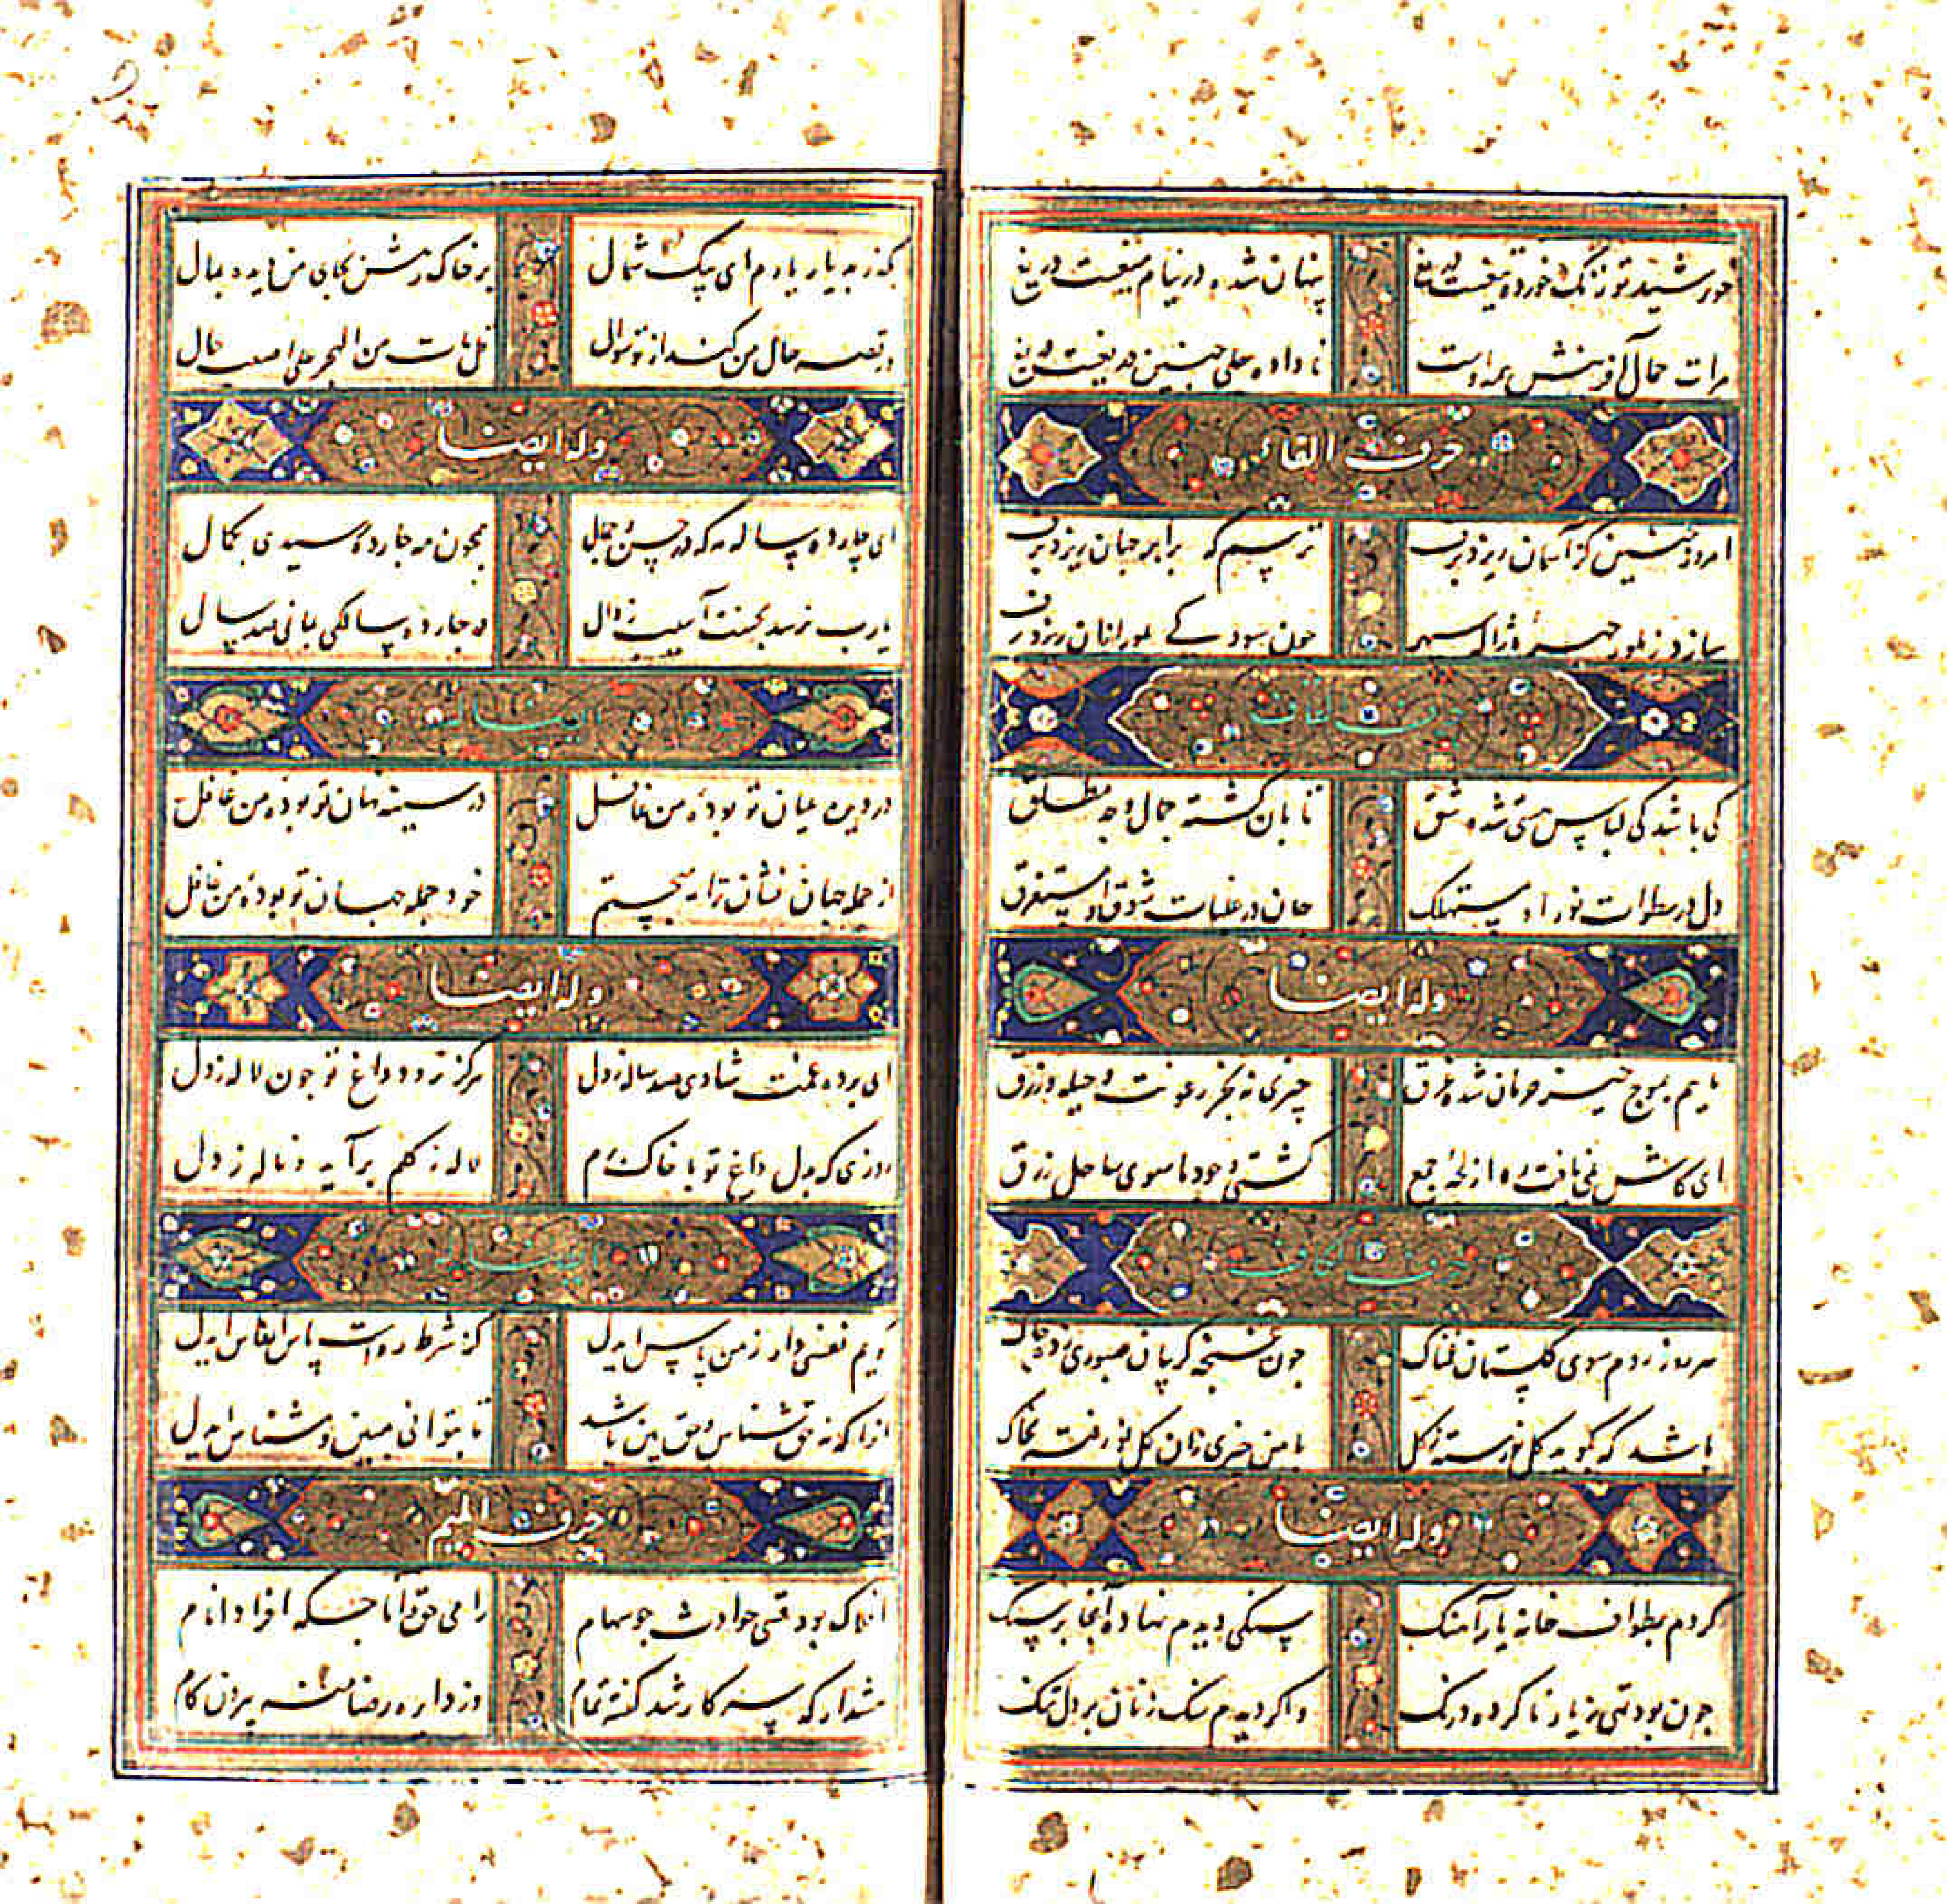 خورشید تو زنگ خورده میغست دریغ پنهان شده در نیام تیغست دریغ
مرات جمال آفرینش بر اوست نا داده جلی چنین دریغست دریغ
حرف الفاء
امروز چنین کز آسمان ریزد برف ترسم که برابر جهان ریزد برف
سازد ز بلور سپهر خون بسود کی بلور انان ریزد برف
حرف القاف
کی باشد کی لباس هستی شده شق تابان گشته جمال وجه مطلق
دل در سطوات نور او مستهلک جان در غلبات شوق او مستغرق
وله ایضا
ماییم بموج حرمان شده غرق چیزی نه بجز رعونت و حیله و زرق
ای کاش نمی یافت ره از لجه جمع کشتی وجود ما سوی ساحل فرق
حرف الکاف
هر روز روم سوی گلستان غمناک چون غنچه گریبان صبوری زده چاک
باشد که بگوید گل نورسته ز گل با من خبری زان گل نو رفته بخاک
وله ایضا
کردم بطواف خانه یار آهنگ سنگی دیدم نهاده آنجا بر سنگ
چون بود تهی ز یار نا کرده درنگ وا گردیدم سنگ زنان بر دل تنگ
بگذر به دیار یارم ای پیک شمال بر خاک درش بجای من دیده بمال
ور قصه حال من کند از تو سوال قل مات من الهجر علی اصعب حال
وله ایضا
ای چارده ساله مه که در حسن و جمال همچون مه چارده رسیدی بکمال
یارب نرسد بحسنت آسیب زوال در چارده سالگی بمانی صد سال
وله ایضا
در دیده عیان تو بوده من غافل در سینه نهان تو بوده من غافل
از جمله جهان نشان ترا میجستم خود جمله جهان تو بوده من غافل
وله ایضا
ای برده غمت شادی صد ساله ز دل هرگز نرود داغ تو چون لاله ز دل
روزی که بدل داغ تو با خاک برم لاله ز گلم برآید و ناله ز دل
وله ایضا
گویم نفسی دار ز من پاس ایدل کز شرط رهست پاس انفاس ایدل
انرا که نه حق شناس و حق بین باشد تا بتوانی مبین و مشناس ایدل
حرف المیم
افلاک بود قسی حوادث چو سهام رامی حق و آماجگه افراد انام
هشدار که سر کار شد گفته تمام وز دایره رضا منه بیرون گام